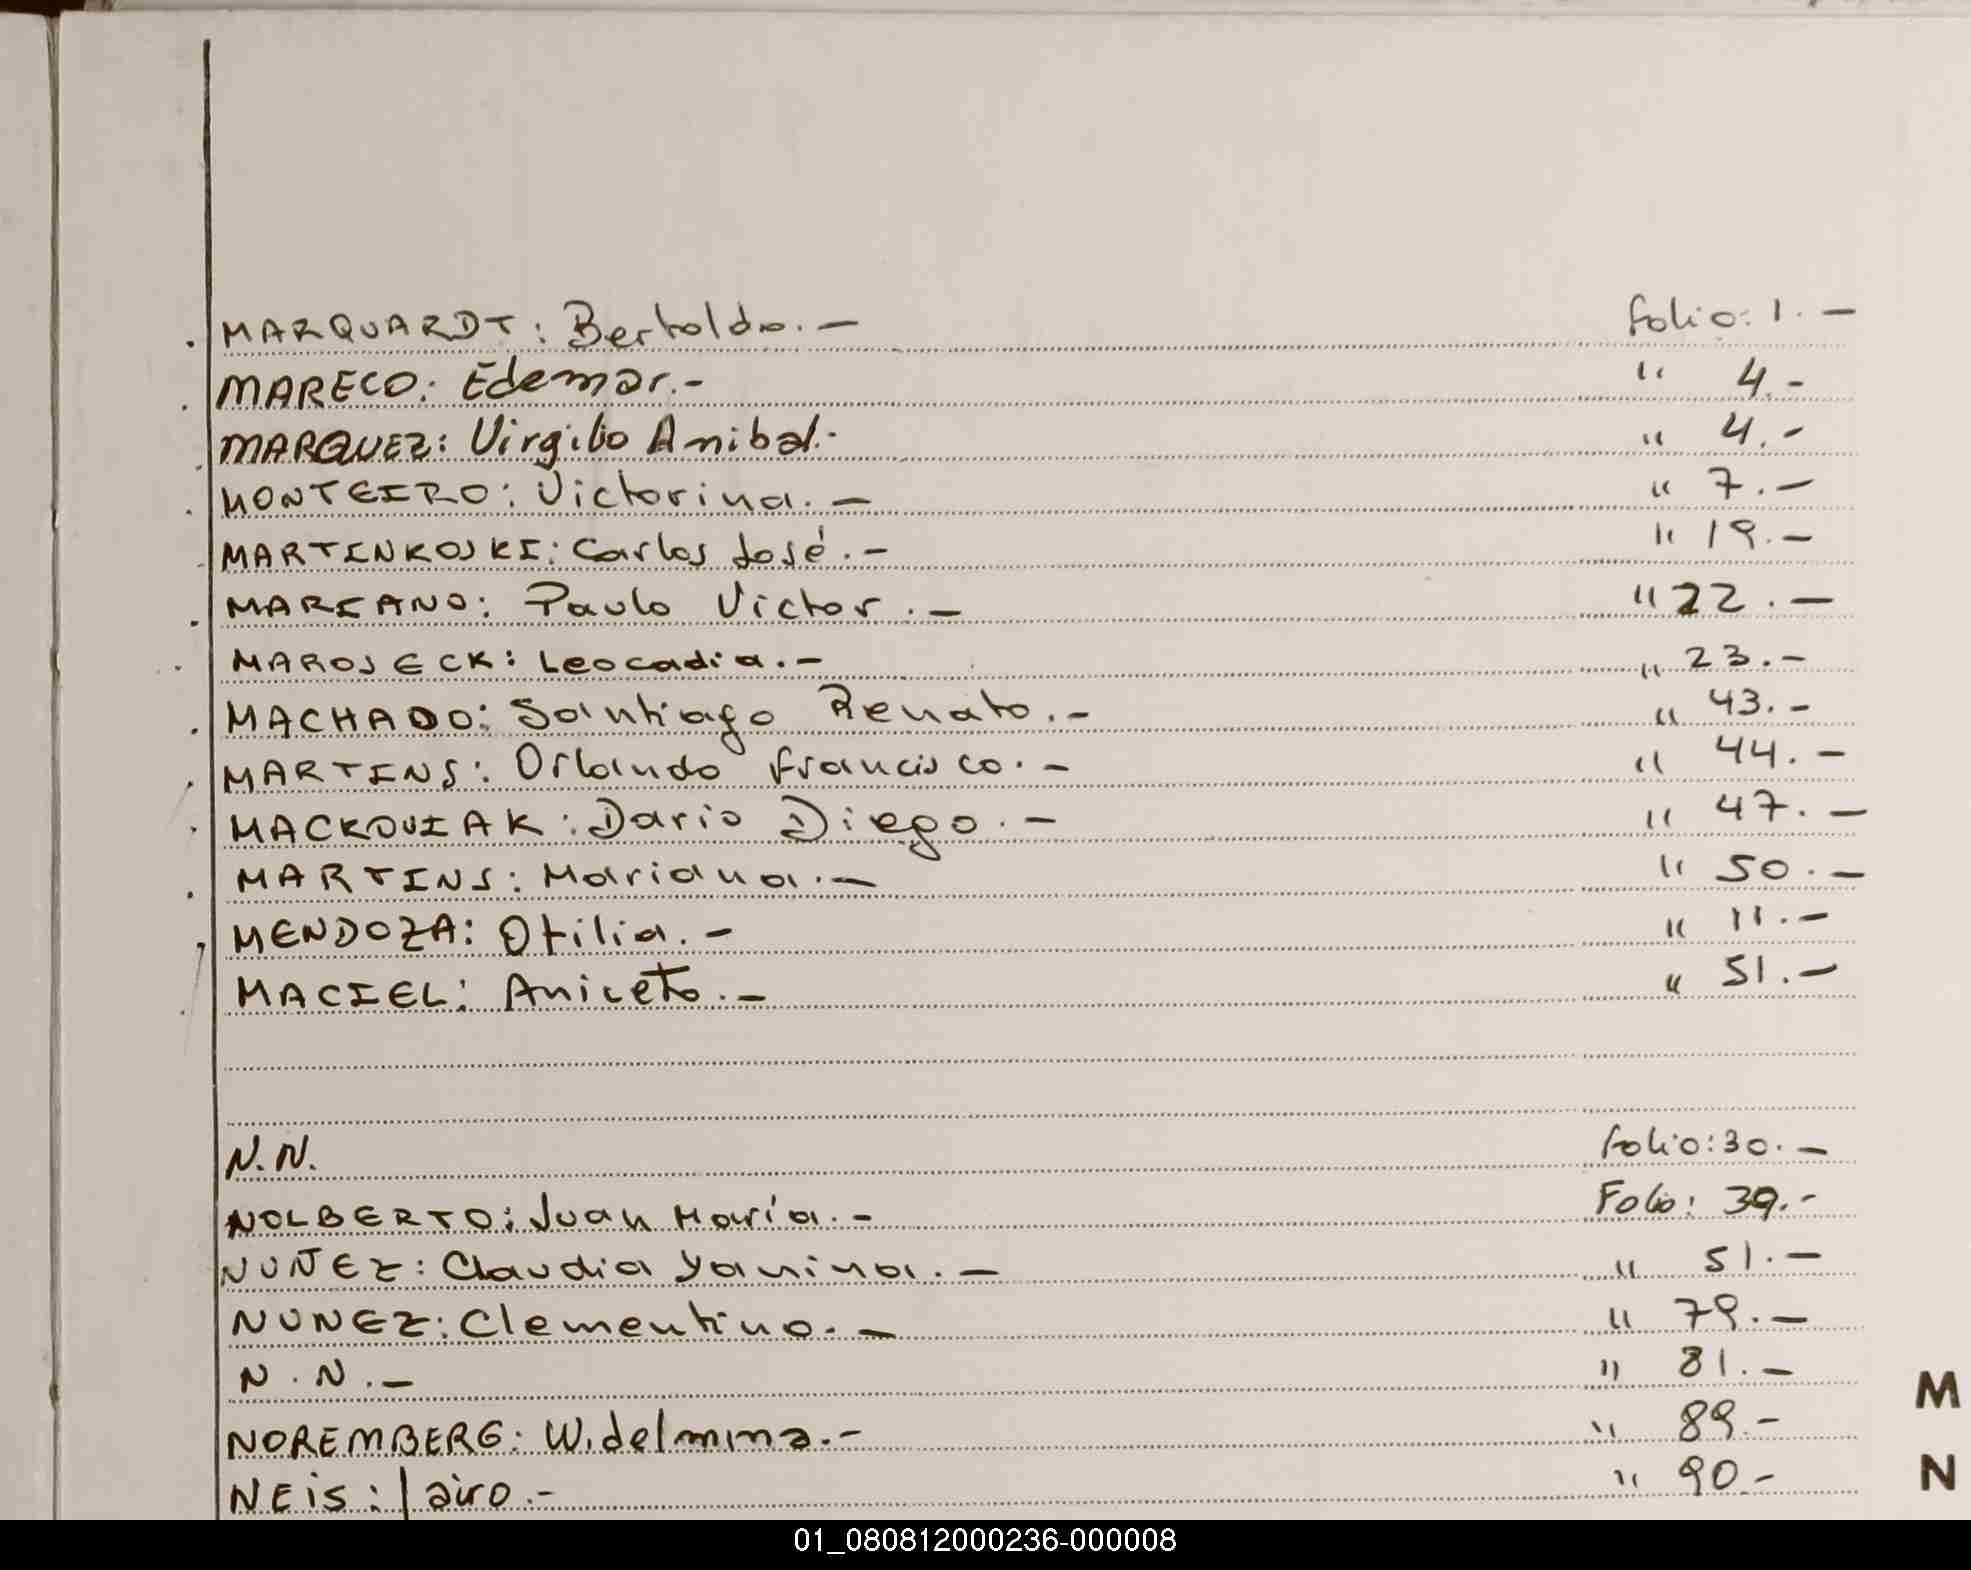 MARQUARDT: Bertoldo.— folio: 1.—
MARECO: Edemar.- " 4.-
MARQUEZ: Virgilio Anibal.- " 4.-
MONTEIRO: Victorina.— " 7.—
MARTINKOSKI: Carlos José.— " 19.—
MARIANO: Paulo Victor.— " 22.—
MAROSECK: Leocadia.— " 23.—
MACHADO: Santiago Renato.- " 43.-
MARTINS: Orlando Francisco.- " 44.—
MACKOVIAK: Dario Diego.— " 47.—
MARTINS: Mariana.— " 50.—
MENDOZA: Otilia.— " 11.—
MACIEL: Aniceto.— " 51.—
N.N. folio: 30.—
NOLBERTO: Juan María.- Folio: 39.-
NUÑEZ: Claudia Yanina.— " 51.—
NUNEZ: Clementino.— " 79.—
N.N.— " 81.—
NOREMBERG: Widelmina.- " 89.-
NEis: Jairo.- " 90.-
M
N
01_080812000236-000008